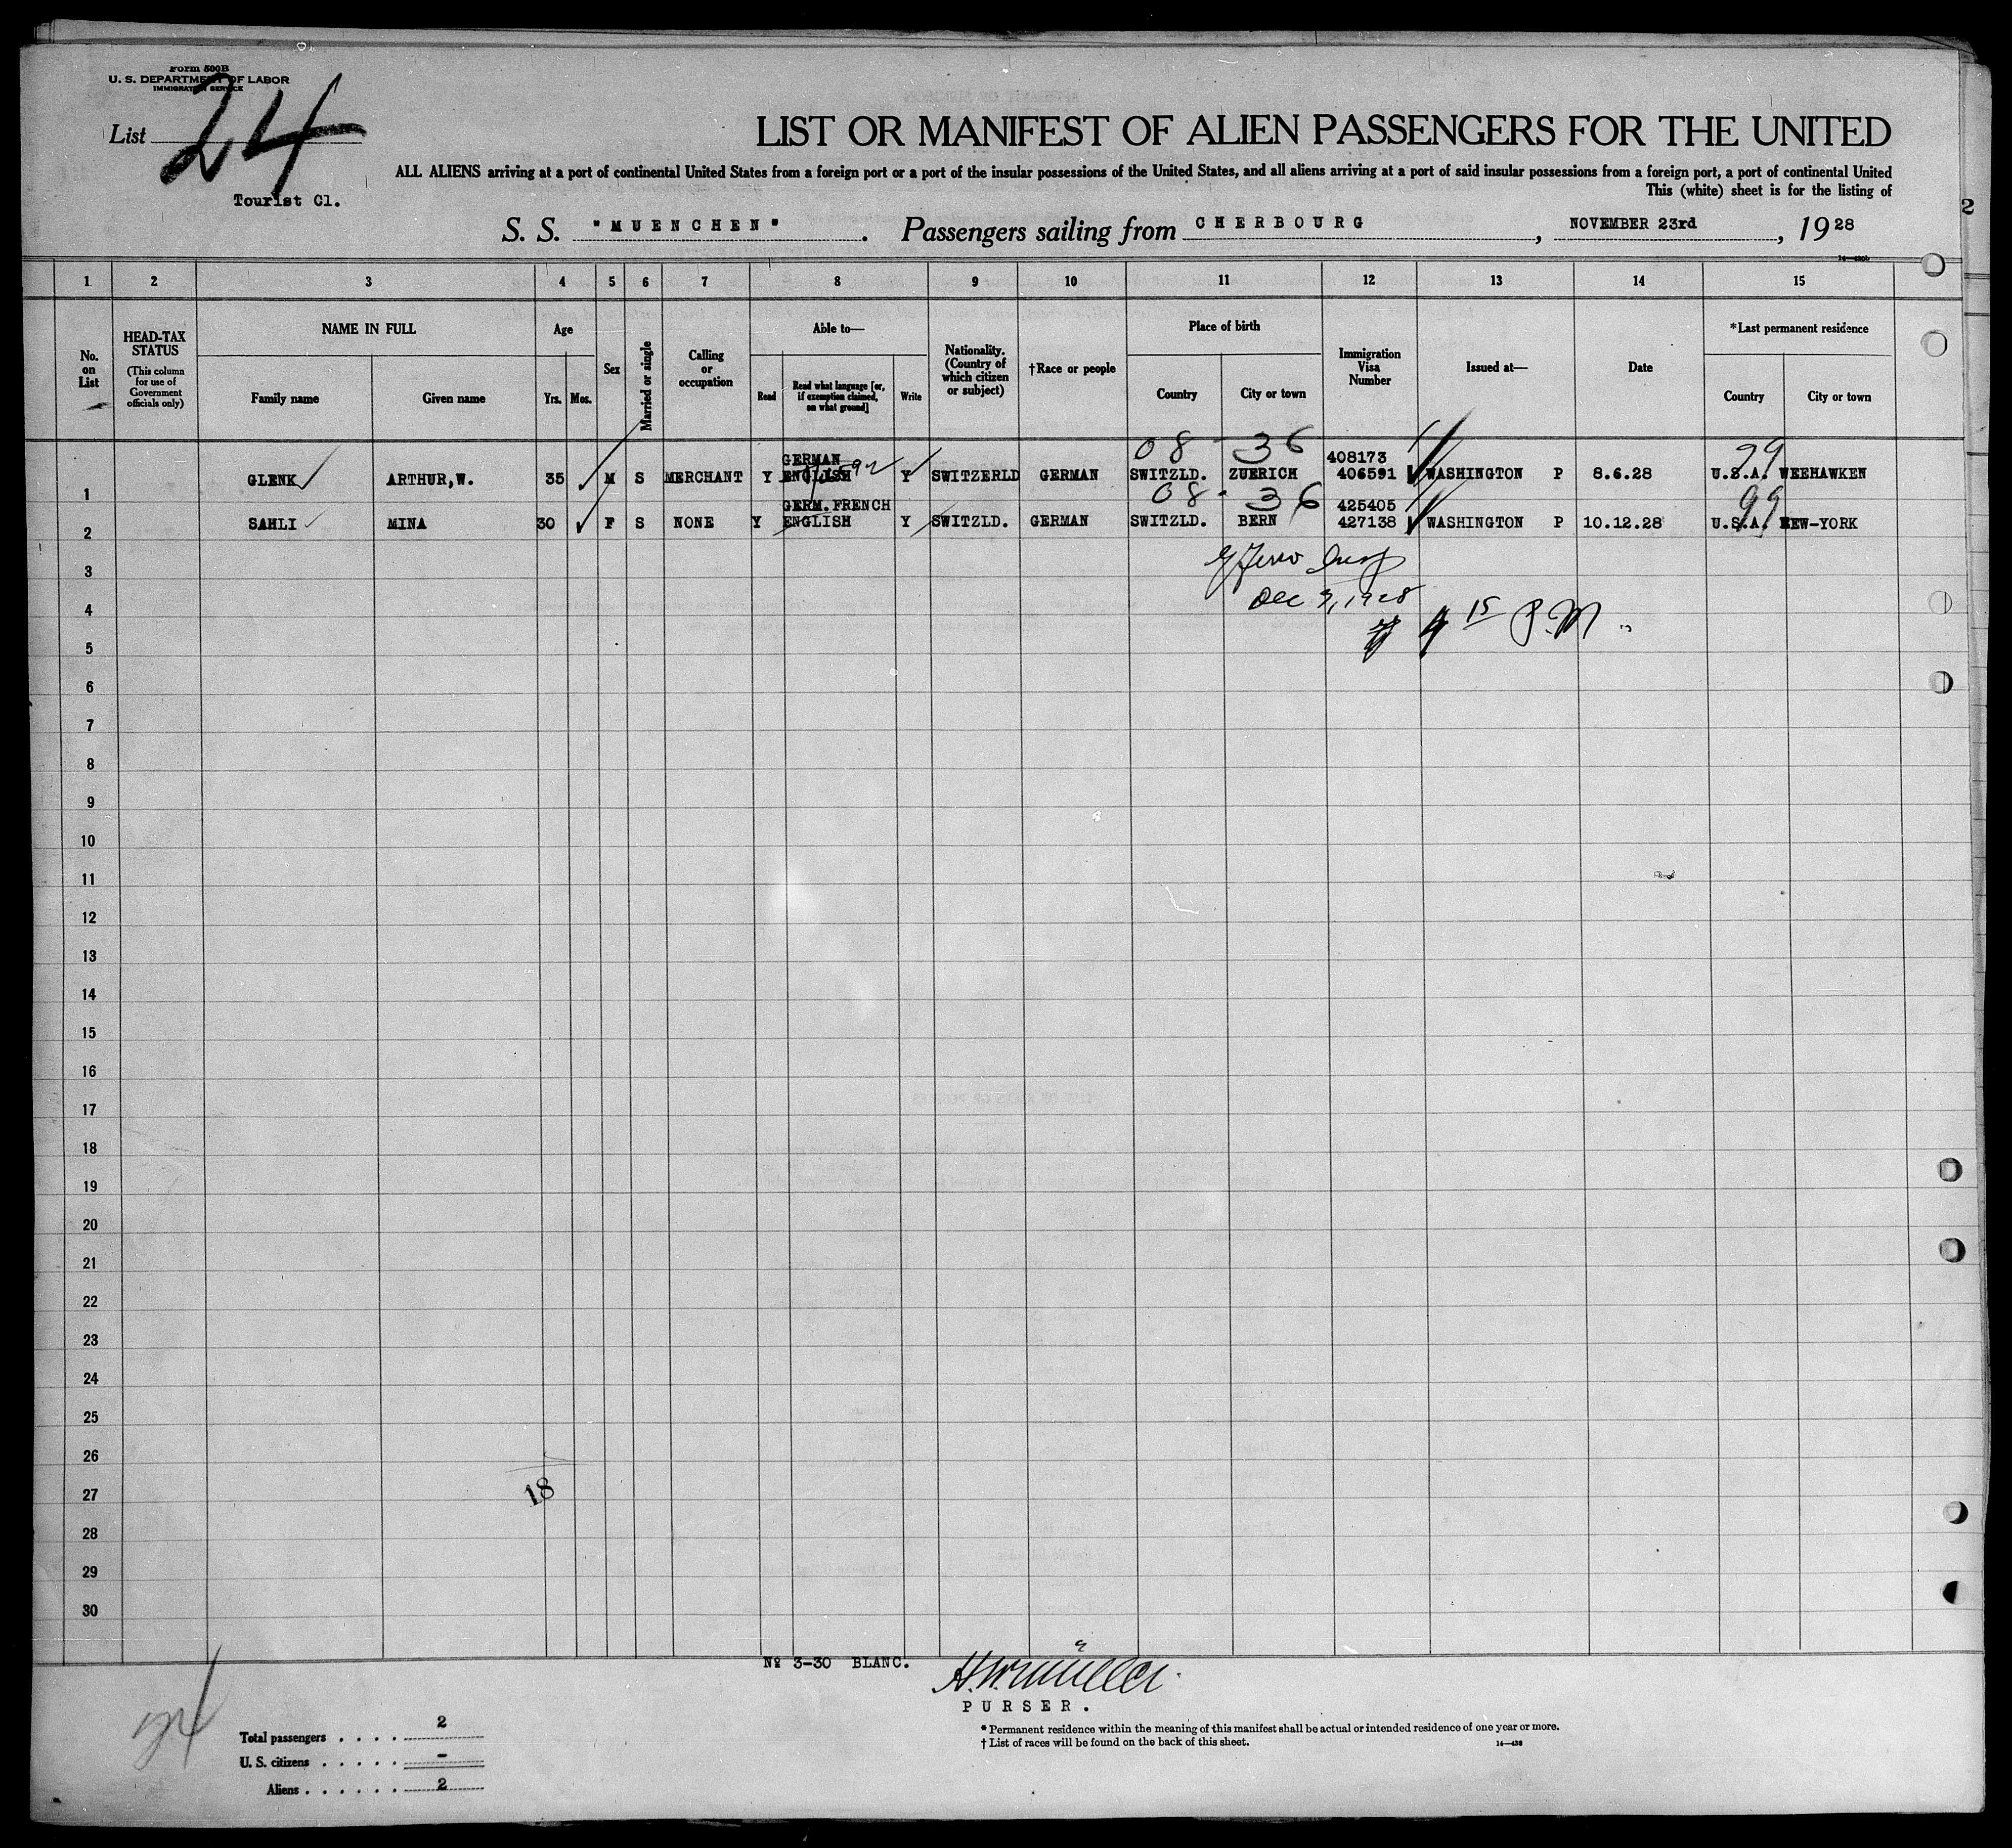 Form 500B
U. S. DEPARTMENT OF LABOR
IMMIGRATION SERVICE
List 24
Tourist Cl.
LIST OR MANIFEST OF ALIEN PASSENGERS FOR THE UNITED
ALL ALIENS arriving at a port of continental United States from a foreign port or a port of the insular possessions of the United States, and all aliens arriving at a port of said insular possessions from a foreign port, a port of continental United
This (white) sheet is for the listing of
2
S. S. "MUENCHEN". Passengers sailing from CHERBOURG, NOVEMBER 23rd, 1928
1 2 3 4 5 6 7 8 9 10 11 12 13 14 15
No. on List
HEAD-TAX STATUS
(This column for use of Government officials only)
NAME IN FULL
Family name Given name
Age
Yrs. Mos.
Sex
Married or single
Calling or occupation
Able to—
Read
Read what language [or, if exemption claimed, on what ground]
Write
Nationality. (Country of which citizen or subject)
†Race or people
Place of birth
Country City or town
Immigration Visa Number
Issued at—
Date
*Last permanent residence
Country City or town
08 - 36 99
GERMAN 408173
1 GLENK ARTHUR,W. 35 M S MERCHANT Y ENGLISH Y SWITZERLD GERMAN SWITZLD. ZUERICH 406591 WASHINGTON P 8.6.28 U.S.A. WEEHAWKEN
08 - 36 99
GERM.FRENCH 425405
2 SAHLI MINA 30 F S NONE Y ENGLISH Y SWITZLD. GERMAN SWITZLD. BERN 427138 WASHINGTON P 10.12.28 U.S.A. NEW-YORK
Dec 3, 1928
4 15 P.M.
3
4
5
6
7
8
9
10
11
12
13
14
15
16
17
18
19
20
21
22
23
24
25
26
27
18
28
29
30
No 3-30 BLANC.
PURSER.
24
Total passengers . . . . 2
U. S. citizens . . . . . -
Aliens . . . . . . 2
* Permanent residence within the meaning of this manifest shall be actual or intended residence of one year or more.
† List of races will be found on the back of this sheet.
14—430